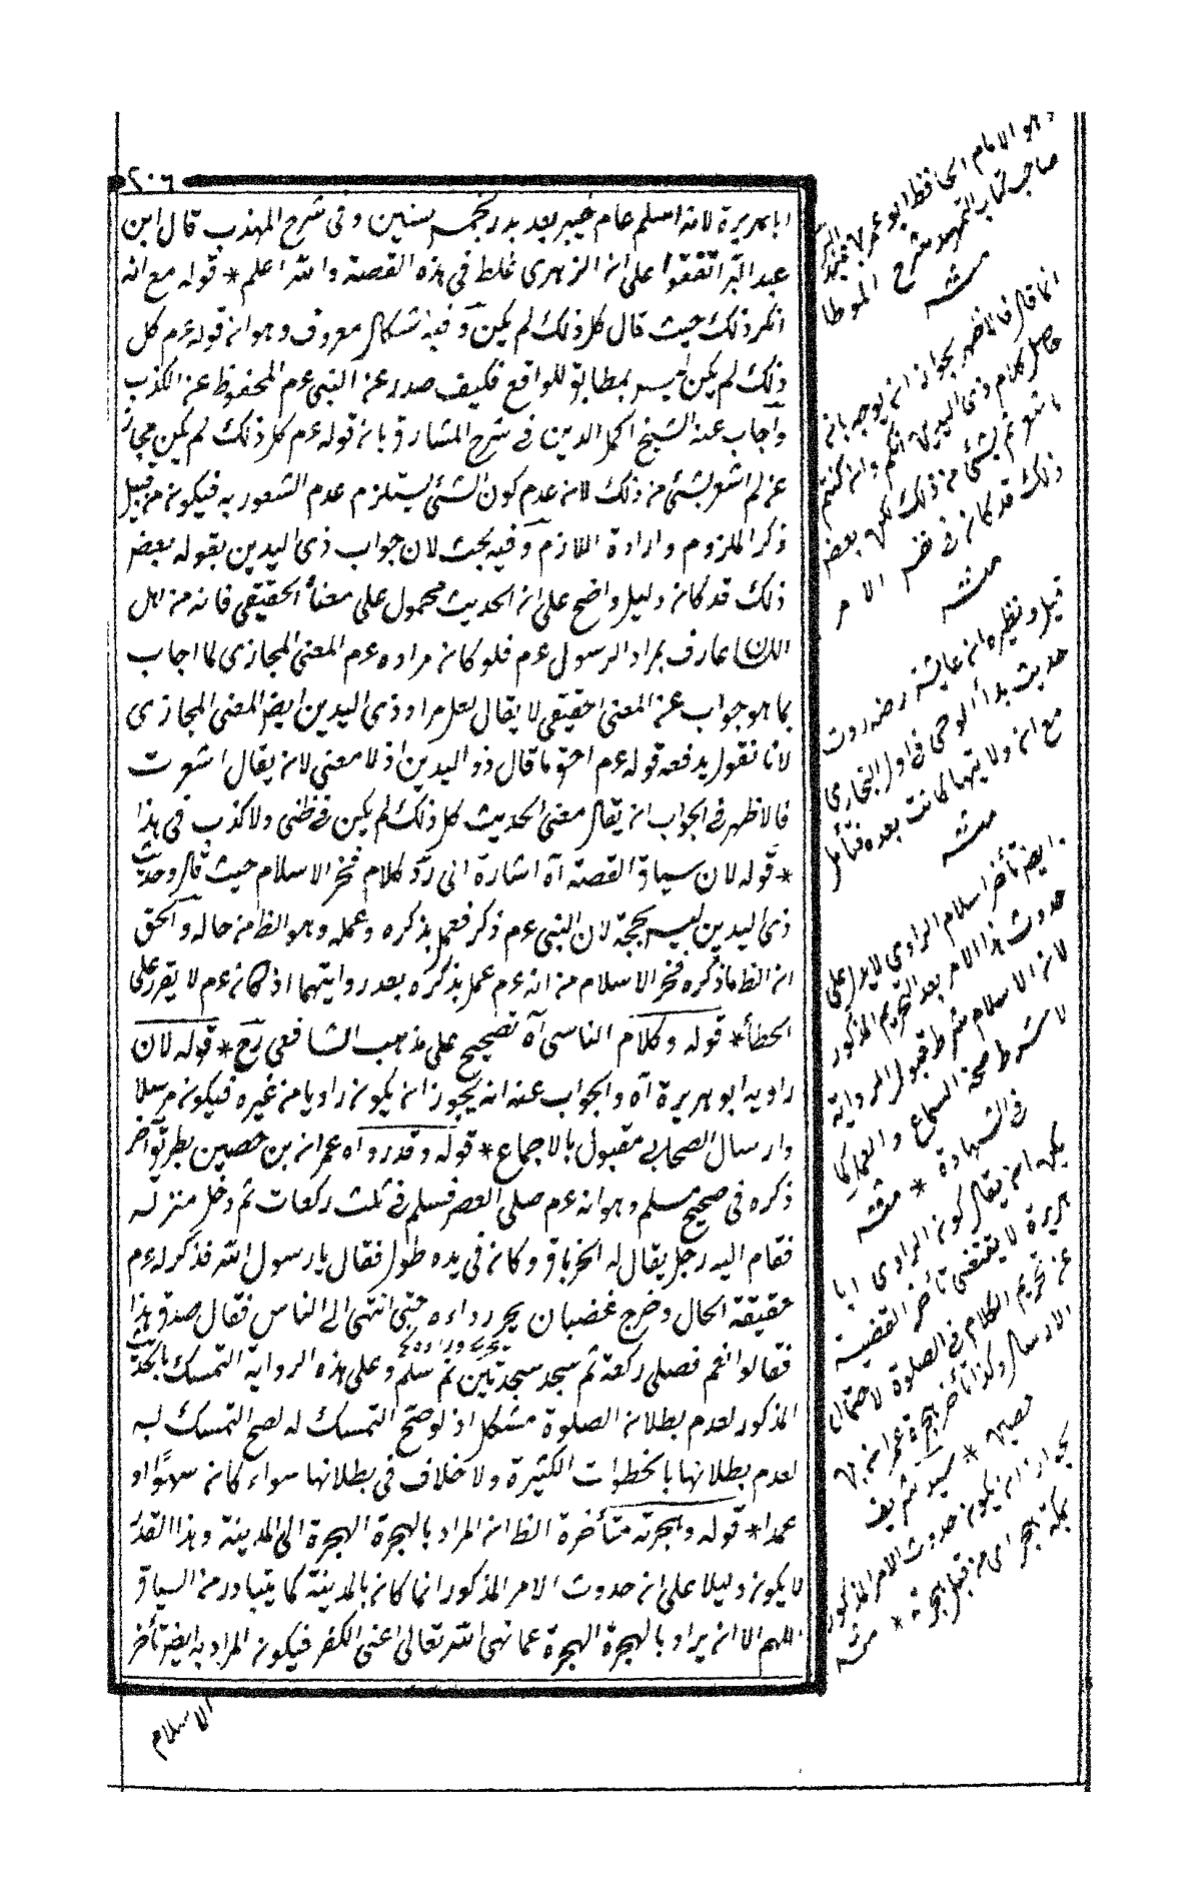 ٢٠٦
ابا هريرة لانه اسلم عام خيبر بعد بدر بخمس سنين وفى شرح المهذب قال ابن
عبد البر اتفقوا على ان الزهرى غلط فى هذه القصة والله اعلم * قوله مع انه
انكر ذلك حيث قال كل ذلك لم يكن وفيه اشكال معروف وهو ان قوله عم كل
ذلك لم يكن ليس بمطابق للواقع فكيف صدر عن النبى عم المحفوظ عن الكذب
واجاب عنه الشيخ اكمل الدين فى شرح المشارق بان قوله عم كل ذلك لم يكن مجاز
عن لم اشعر بشئ من ذلك لان عدم كون الشئ يستلزم عدم الشعور به فيكون من قبيل
ذكر الملزوم وارادة اللازم وفيه بحث لان جواب ذى اليدين بقوله بعض
ذلك قد كان دليل واضح على ان الحديث محمول على معناه الحقيقى فانه من اهل
اللسان عارف بمراد الرسول عم فلو كان مراده عم المعنى المجازى لما اجاب
بما هو جواب عن المعنى الحقيقى لا يقال لعل مراد ذى اليدين ايضا المعنى المجازى
لانا نقول يدفعه قوله عم احق ما قال ذو اليدين اذ لا معنى لان يقال اشعرت
فالاظهر فى الجواب ان يقال معنى الحديث كل ذلك لم يكن فى ظنى ولا كذب فى هذا
* قوله لان سياق القصة آه اشارة الى رد كلام فخر الاسلام حيث قال وحديث
ذى اليدين ليس بحجة لان النبى عم ذكر فعمل بذكره وعمله وهو الظ من حاله والحق
ان الظ ما ذكره فخر الاسلام من انه عم عمل بذكره بعد روايتهما اذ كان عم لا يقرر على
الخطأ * قوله وكلام الناسى آه تصحيح على مذهب الشافعى رح * قوله لان
راويه ابو هريرة آه والجواب عنه انه يجوز ان يكون راويا من غيره فيكون مرسلا
وارسال الصحابى مقبول بالاجماع * قوله وقد رواه عمران بن حصين بطريق آخر
ذكره فى صحيح مسلم وهو انه عم صلى العصر فسلم فى ثلث ركعات ثم دخل منزله
فقام اليه رجل يقال له الخرباق وكان فى يده طول فقال يا رسول الله فذكر له عم
حقيقة الحال وخرج غضبان يجر رداءه حتى انتهى الى الناس فقال صدق هذا
فقالوا نعم فصلى ركعة ثم سجد سجدتين ثم سلم وعلى هذه الرواية التمسك بالحديث
المذكور لعدم بطلان الصلوة مشكل اذ لو صح التمسك له لصح التمسك به
لعدم بطلانها بالخطوات الكثيرة ولا خلاف فى بطلانها سواء كان سهوا او
عمدا * قوله وهجرته متأخرة الظ ان المراد بالهجرة الهجرة الى المدينة وهذا القدر
لا يكون دليلا على ان حدوث الامر المذكور انما كان بالمدينة كما يتبادر من السياق
اللهم الا ان يراد بالهجرة الهجرة عما نهى الله تعالى اعنى الكفر فيكون المراد به ايضا تأخر
الاسلام
وهو الامام الحافظ ابو عمر بن عبد البر
صاحب كتاب التمهيد شرح الموطا
منه
انما قال فالاظهر لجواز ان يوجه بان
حاصل كلام ذى اليدين انكم وان كنتم
ما شعرتم بشئ من ذلك لكن بعض
ذلك قد كان فى نفس الامر
منه
قيل ونظيره ان عايشة رضه روت
حديث بدأ الوحى فى اول البخارى
مع ان ولايتها كانت بعده فتأمل
منه
ايضا تأخر اسلام الراوى لا يدل على
حدوث هذا الامر بعد التحريم المذكور
لان الاسلام شرط قبول الرواية
لا شرط صحة السماع والتحمل كما
فى الشهادة * منه
يمكن ان يقال كون الراوى ابا
هريرة لا يقتضى تأخر القضية
عن تحريم الكلام فى الصلوة لاحتمال
الارسال وكذا تأخر هجرة عمران بن
حصين * سيد شريف
لجواز ان يكون حدوث الامر المذكور
بمكة اجرى من قبل هجرته * منه